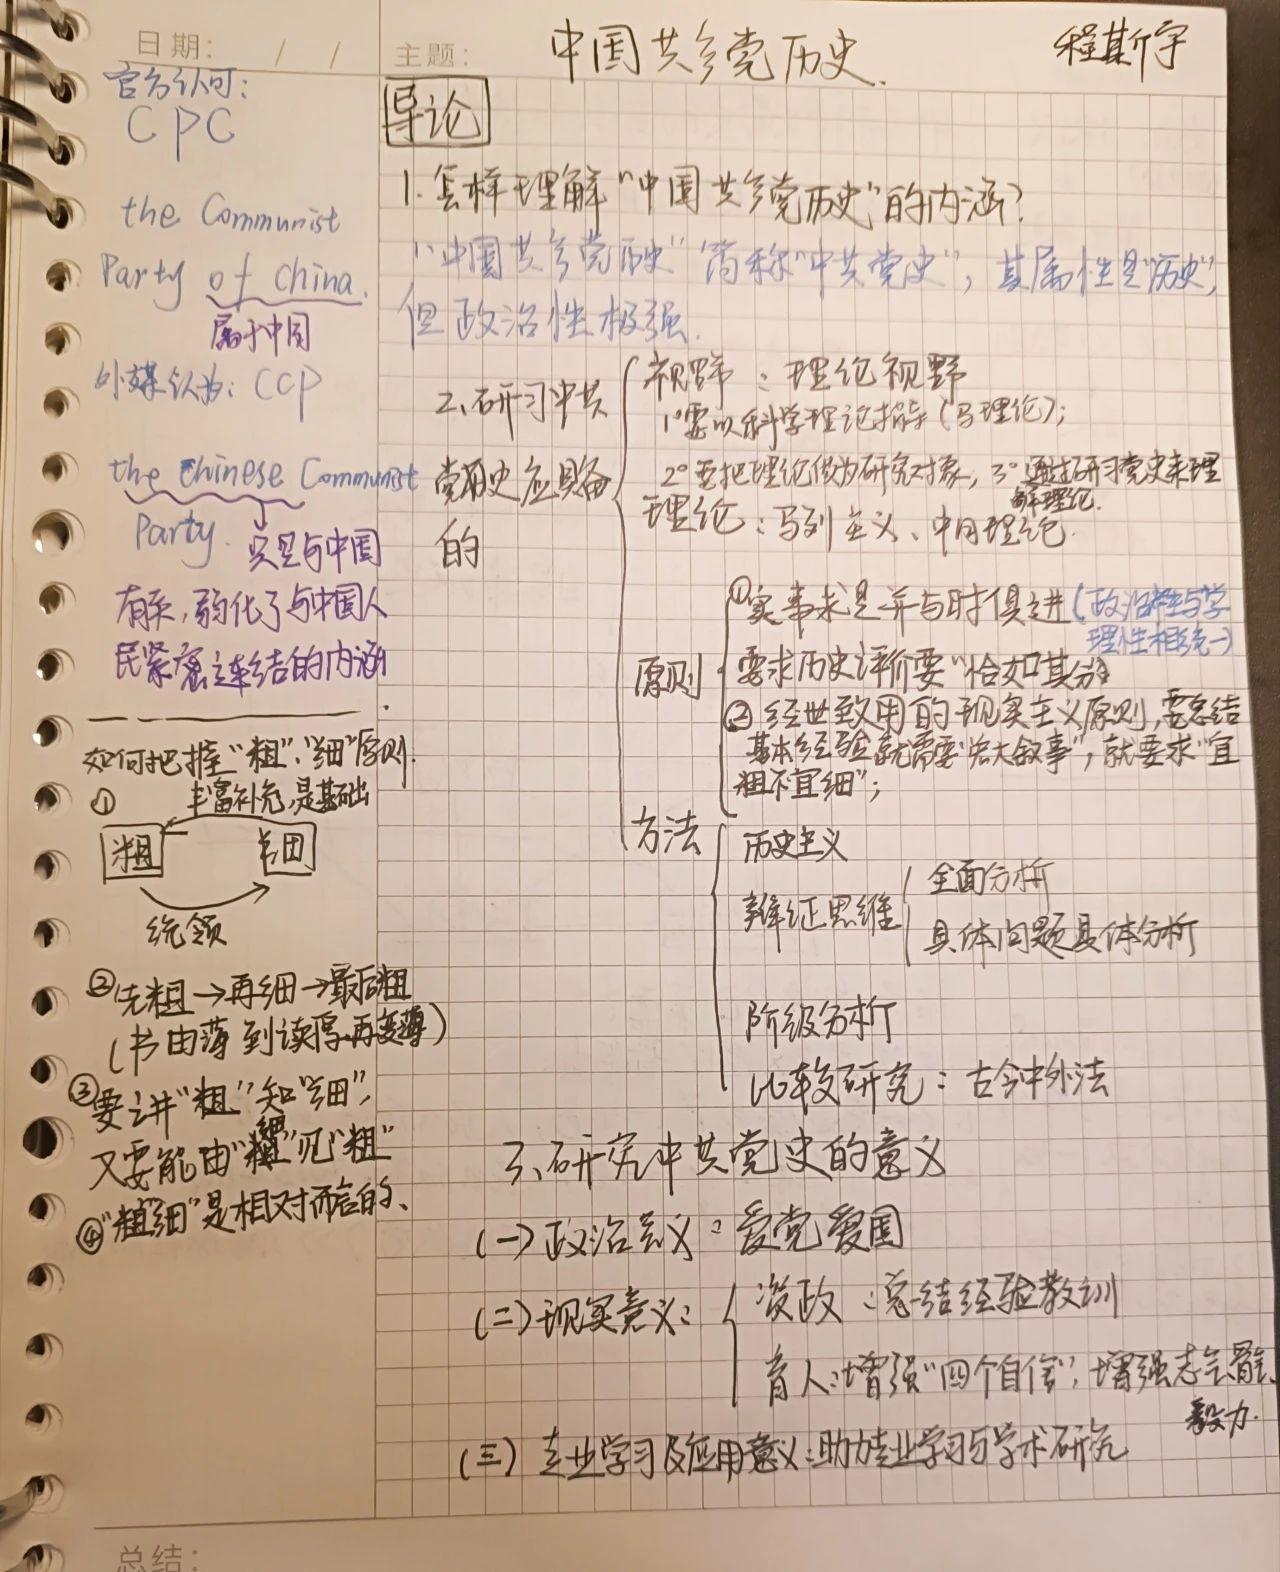 日期: / /
主题:
中国共产党历史.
程斯宇
官方认可:
CPC
the Communist
Party of China.
属于中国
外媒认为: CCP
the Chinese Communist
Party.
只是与中国
有关,弱化了与中国人
民紧密连结的内涵.
如何把握“粗”、“细”原则.
①
丰富补充,是基础
粗 细
统领
②先粗→再细→最后粗
(书由薄到读厚再变薄)
③要讲“粗”知“细”,
又要能由“细”见“粗”
④“粗”“细”是相对而言的、
导论
1.怎样理解“中国共产党历史”的内涵?
1°“中国共产党历史”简称“中共党史”,其属性是“历史”,
但政治性极强.
2、研习中共
党历史应具备
的
视野:理论视野
1°要以科学理论指导(马理论);
2°要把理论做为研究对象,3°通过研习党史来理
解理论.
理论:马列主义、中国理论.
原则
①实事求是并与时俱进(政治性与学
理性相统一)
要求历史评价要“恰如其分”
②经世致用的现实主义原则,要总结
基本经验就需要“宏大叙事”,就要求“宜
粗不宜细”;
方法
历史主义
辩证思维
全面分析
具体问题具体分析
阶级分析
比较研究:古今中外法
3、研究中共党史的意义
(一)政治意义:爱党爱国
(二)现实意义:
资政:总结经验教训
育人:增强“四个自信”,增强志气、骨气、
毅力.
(三)专业学习及应用意义:助力专业学习与学术研究
总结: